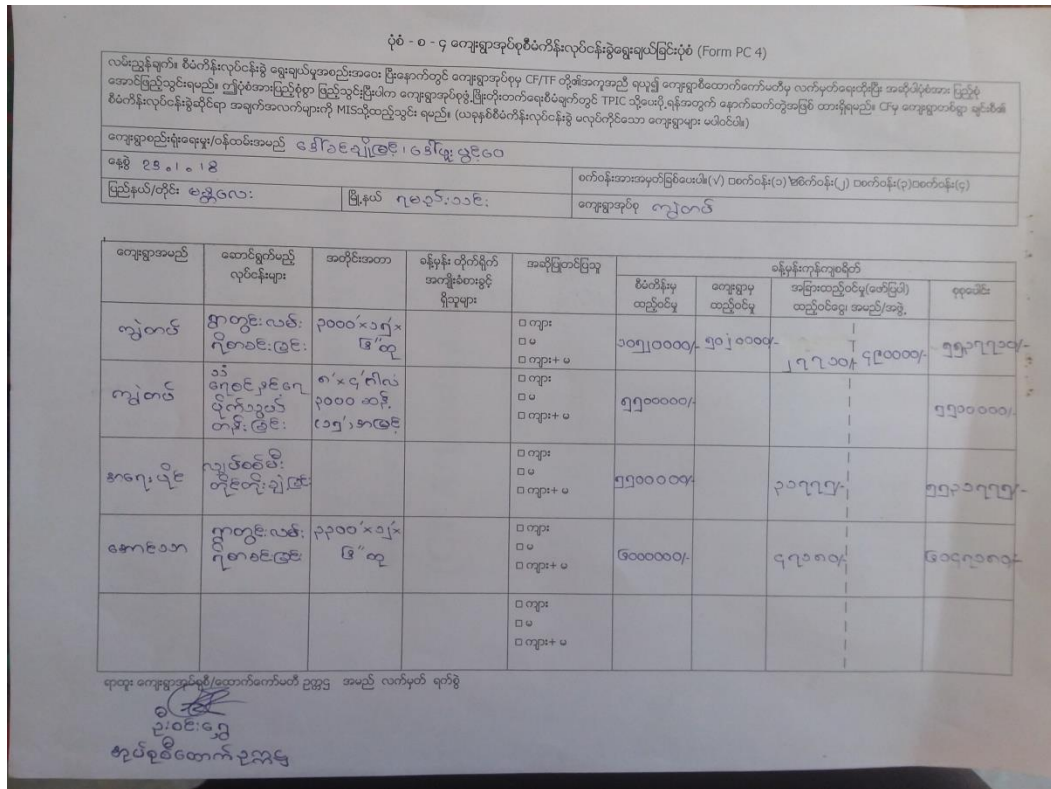 ပုံစံ - စ - ၄ ကျေးရွာအုပ်စုစီမံကိန်းလုပ်ငန်းခွဲရွေးချယ်ခြင်းပုံစံ (Form PC 4)
လမ်းညွှန်ချက်။ စီမံကိန်းလုပ်ငန်းခွဲ ရွေးချယ်မှုအစည်းအဝေး ပြီးနောက်တွင် ကျေးရွာအုပ်စုမှ CF/TF တို့၏အကူအညီ ရယူ၍ ကျေးရွာစီထောက်ကော်မတီမှ လက်မှတ်ရေးထိုးပြီး အဆိုပါပုံစံအား ပြည့်စုံ
အောင်ဖြည့်သွင်းရမည်။ ဤပုံစံအားပြည့်စုံစွာ ဖြည့်သွင်းပြီးပါက ကျေးရွာအုပ်စုဖွံ့ဖြိုးတိုးတက်ရေးစီမံချက်တွင် TPIC သို့ပေးပို့ရန်အတွက် နောက်ဆက်တွဲအဖြစ် ထားရှိရမည်။ CFမှ ကျေးရွာတစ်ရွာ ချင်းစီ၏
စီမံကိန်းလုပ်ငန်းခွဲဆိုင်ရာ အချက်အလက်များကို MISသို့ထည့်သွင်း ရမည်။ (ယခုနှစ်စီမံကိန်းလုပ်ငန်းခွဲ မလုပ်ကိုင်သော ကျေးရွာများ မပါဝင်ပါ။)
ကျေးရွာစည်းရုံးရေးမှူး/ဝန်ထမ်းအမည် ဒေါ်ခင်ချိုမြင့်၊ ဒေါ်ဖူးပွင့်ဝေ
နေ့စွဲ ၂၁.၁.၁၈
စက်ဝန်းအားအမှတ်ခြစ်ပေးပါ။(√) □စက်ဝန်း(၁) စက်ဝန်း(၂) □စက်ဝန်း(၃)□စက်ဝန်း(၄)
ပြည်နယ်/တိုင်း မန္တလေး မြို့နယ် ရမည်းသင်း ကျေးရွာအုပ်စု ကျွဲတပ်
ကျေးရွာအမည် ဆောင်ရွက်မည့် လုပ်ငန်းများ အတိုင်းအတာ ခန့်မှန်း တိုက်ရိုက် အကျိုးခံစားခွင့် ရှိသူများ အဆိုပြုတင်ပြသူ ခန့်မှန်းကုန်ကျစရိတ်
စီမံကိန်းမှ ထည့်ဝင်မှု ကျေးရွာမှ ထည့်ဝင်မှု အခြားထည့်ဝင်မှု(ဖော်ပြပါ) ထည့်ဝင်ငွေ၊ အမည်/အဖွဲ့ စုစုပေါင်း
ကျွဲတပ် ရွာတွင်းလမ်း ၃၀၀၀'×၁၅'×
ဂိုစာခင်းခြင်း ၆"ထု
□ ကျား
□ မ
□ ကျား+ မ
ကျွဲတပ်
၃၀၀၀ ဆန့်
□ ကျား
□ မ
□ ကျား+ မ
၅၅၀၀၀၀၀/- ၅၅၀၀၀၀၀/-
လျှပ်စစ်မီး
တိုင်တိုးချဲ့ခြင်း
□ ကျား
□ မ
□ ကျား+ မ
၅၅၀၀၀၀၀/- ၃၁၇၇၅/- ၅၅၃၁၇၇၅/-
အောင်သာ ရွာတွင်းလမ်း ၃၃၀၀'×၁၂'×
ဂိုစာခင်းခြင်း ၆"ထု
□ ကျား
□ မ
□ ကျား+ မ
၆၀၀၀၀၀၀/- ၄၇၁၈၀/- ၆၀၄၇၁၈၀/-
□ ကျား
□ မ
□ ကျား+ မ
ရာထူး ကျေးရွာအုပ်စုစီ/ထောက်ကော်မတီ ဥက္ကဌ အမည် လက်မှတ် ရက်စွဲ
ဦးဝင်းရွှေ
အုပ်စုစီထောက်ဥက္ကဋ္ဌ